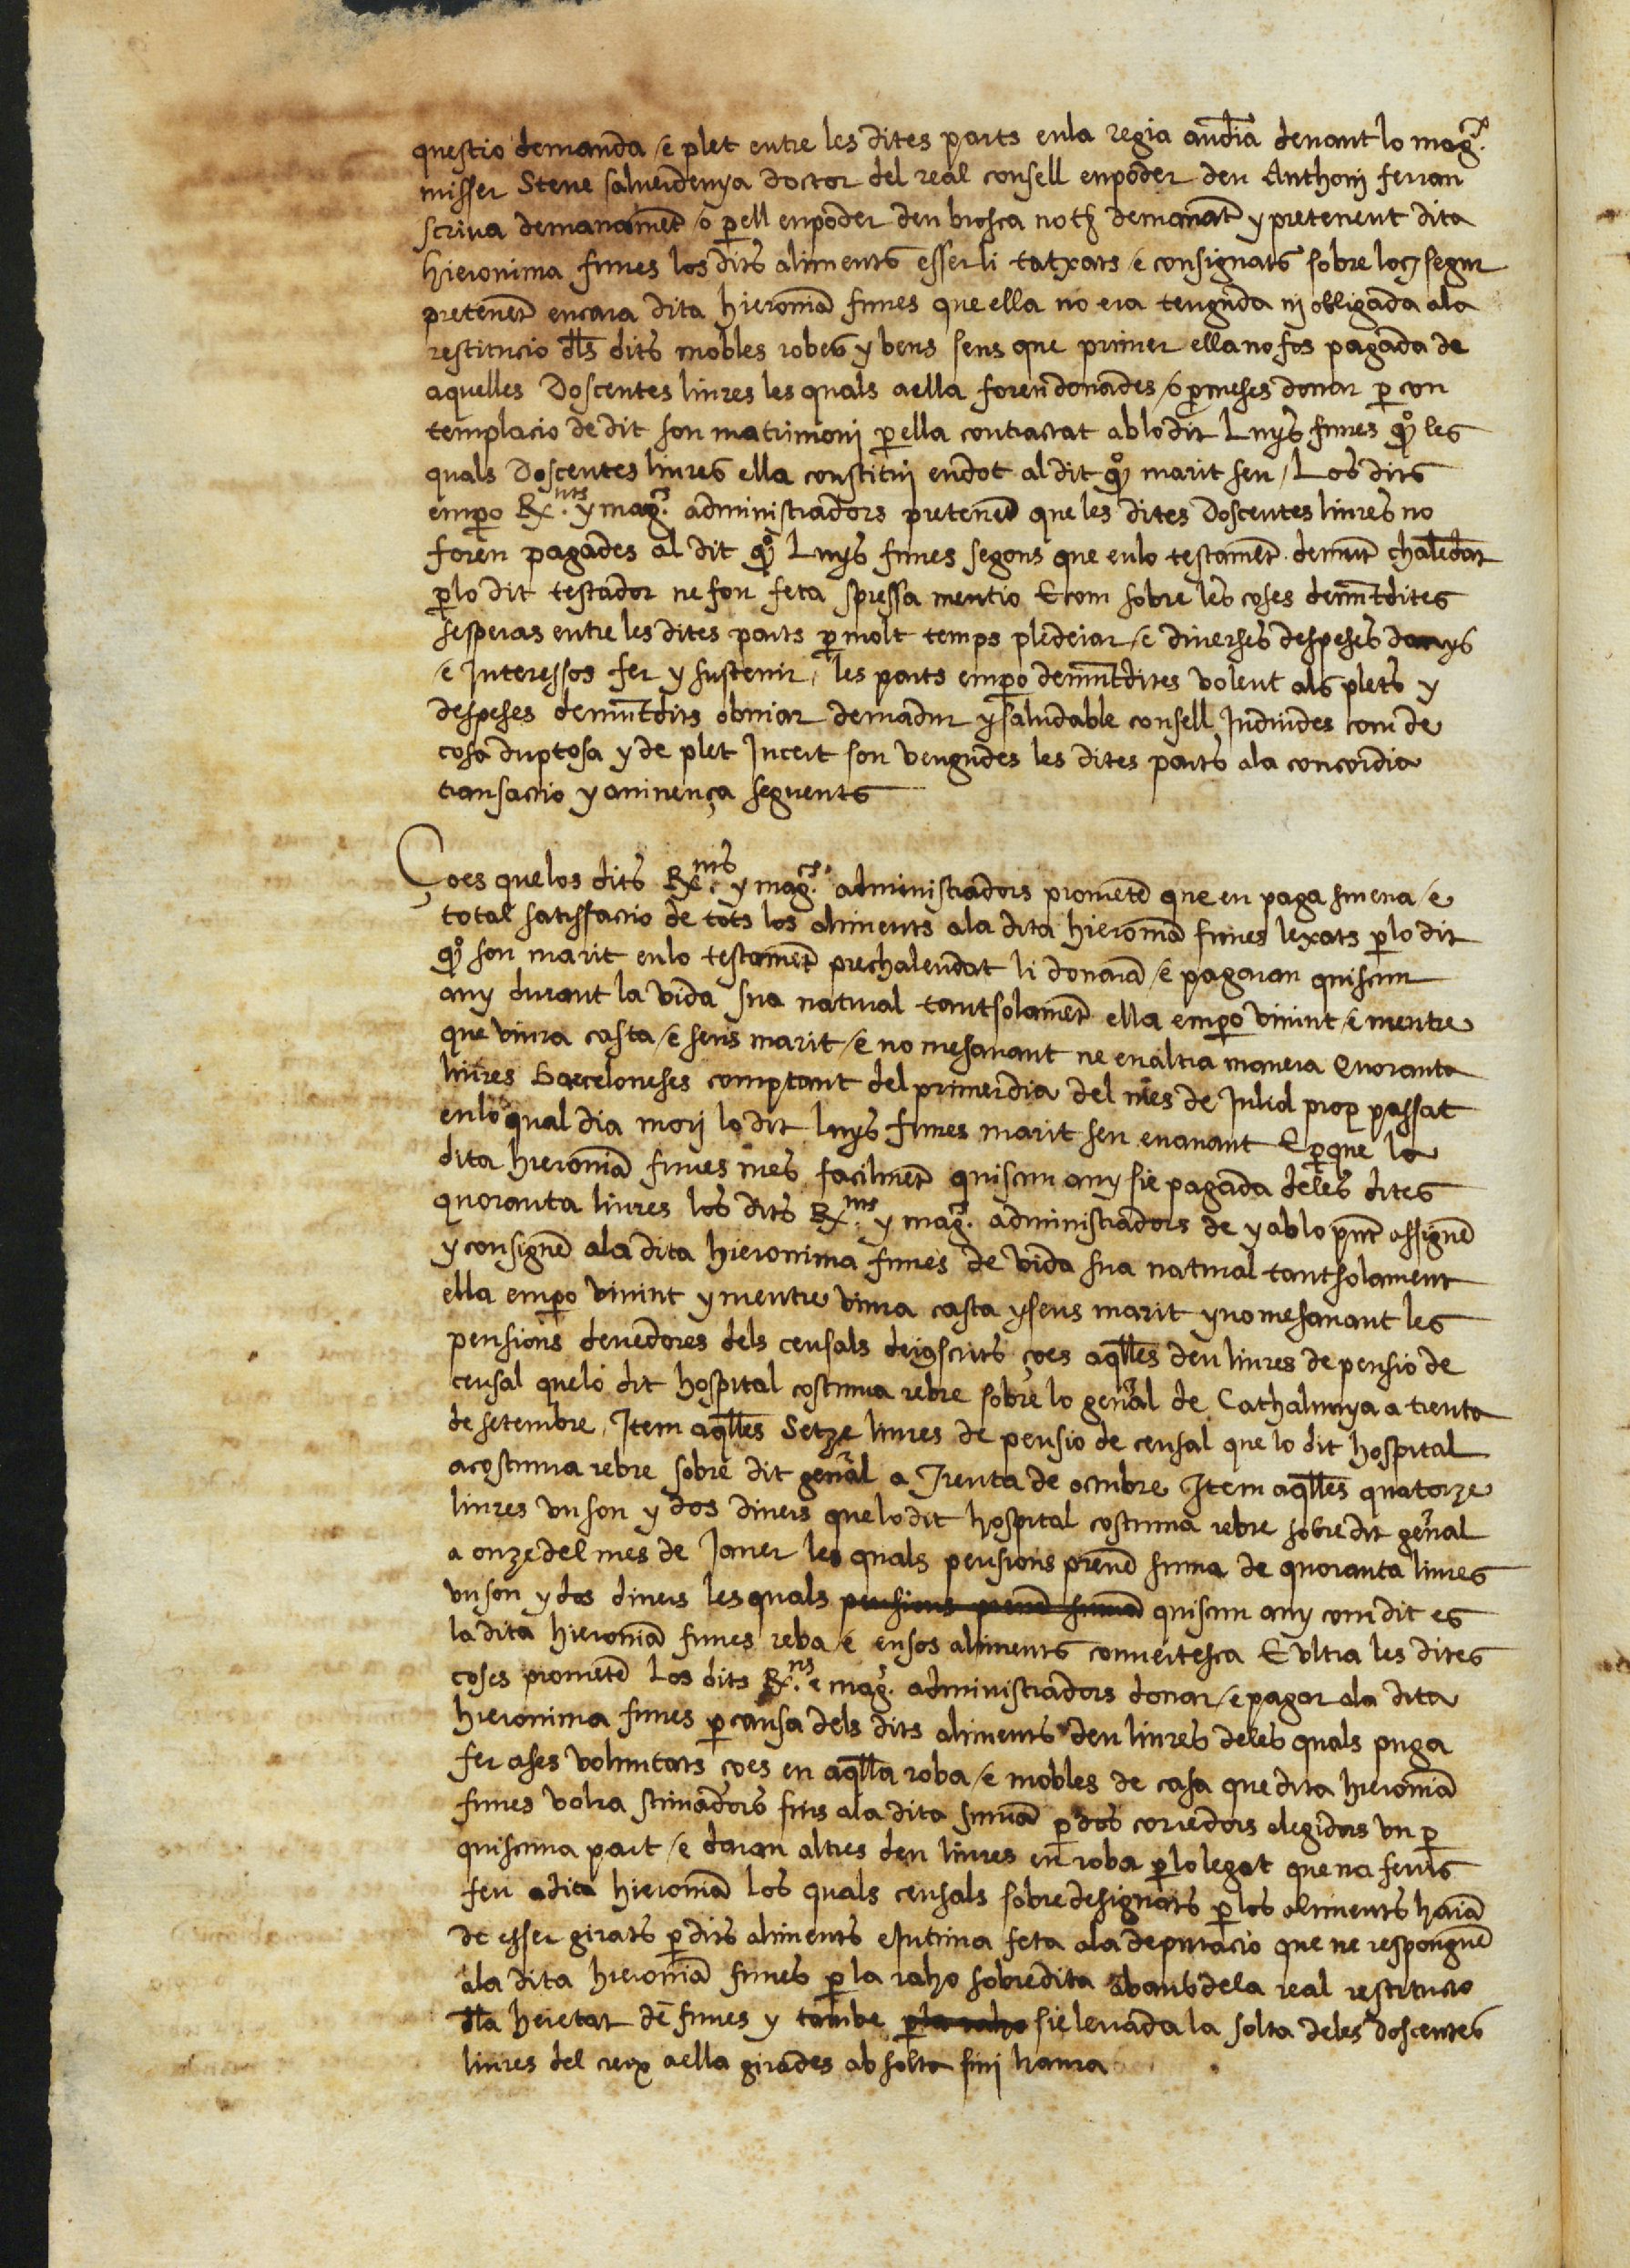 questio demanda / e plet entre les dites parts enla regia audia denant lo magch.
misser Steue saluerdenya doctor del real consell enpoder deu Anthonj ferran
scriua demanament / o per ell enpoder deu brosca noth demanat y pretenent dita
Hieronima funes los dits aliments esserli tatxats / e consignats sobre loch segur
pretenent encara dita hieronima funes que ella no era tenguda nj obligada ala
restitucio dels dits mobles robes y bens sens que primer ella no fos pagada de
aquelles Doscentes liures les quals aella foren donades / o promeses donar per con
templacio de dit son matrimonj per ella contractat ablo dit Luys funes qº les
quals Doscentes liures ella constituj endot al dit qº marit seu / Los dits
empero Rx.nts y magchs. administradors pretenen que les dites Doscentes liures no
foren pagades al dit qº Luys funes segons que enlo testament demunt chalendat
per lo dit testador ne fon feta spressa mentio E com sobre les coses demuntdites
sesperas entre les dites parts per molt temps pledeiar / e diuerses despeses danys
/ e Interessos fer y sustenir / les parts empero demuntdites volent als plets y
despeses demuntdits obuiar demadur y saludable consell Induides com de
cosa duptosa y de plet Incert son vengudes les dites parts ala concordia
transactio y auinença seguents
Çoes que los dits Rx.nts y magchs. administradors prometen que en paga smena / e
total satisfactio de tots los aliments ala dita hieronima funes lexats per lo dit
qº son marit enlo testament prechalendat li donaran / e pagaran quiscun
any durant la vida sua natural tantsolament ella empero viuint / e mentre
que viura casta / e sens marit / e no mesauant ne enaltra manera Quoranta
liures Barceloneses comptant del primer dia del mes de Juliol prop passat
enlo qual dia morj lo dit luys funes marit seu enauant E perque la
dita hieronima funes mes facilment quiscun any sie pagada deles dites
quoranta liures los dits Rx.nts y magchs. administradors de y ablo pnt assignen
y consignen ala dita hieronima funes de vida sua natural tantsolament
ella empero viuint y mentre viura casta y sens marit y no mesauant les
pensions deuedores dels censals deiꝯscrits çoes aqlles deu liures de pensio de
censal quelo dit hospital costuma rebre sobre lo general de Cathalunya a trenta
de setembre. Item aqlles Setze liures de pensio de censal que lo dit hospital
acostuma rebre sobre dit general a Trenta de octubre Item aqlles quatorze
liures vn sou y dos diners que lo dit hospital costuma rebre sobre dit general
a onze del mes de Janer les quals pensions prenen suma de quoranta liures
vn sou y dos diners les quals pensions prenen suma quiscun any com dit es
la dita hieronima funes reba / e ensos aliments conuertesca E vltra les dites
coses prometen Los dits Rx.nts e magchs. administradors donar / e pagar ala dita
hieronima funes per causa dels dits aliments deu liures deles quals puga
fer ases voluntats çoes en aqlla roba / e mobles de casa que dita hieronima
funes volra stimadors fins ala dita suma per dos corredors elegidors vn per
quiscuna part / e daran altres deu liures en roba per lo legat que na
feu adita hieronima los quals censals sobredesignats per los aliments haian
de esser girats per dits aliments e Intima feta ala deputacio que ne responguen
ala dita hieronima funes per la raho sobredita abans dela real restitucio
dlla heretat den funes y tambe per la raho sie leuada la solta deles doscentes
liures del creix aella girades ab solta finj haura